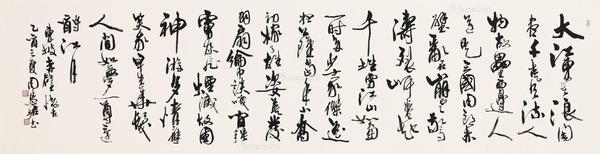 大江東去浪淘
盡千古風流人
物故壘西邊人
道是三國周郎赤
壁亂石崩雲驚
濤裂岸捲起
千堆雪江山如畫
一時多少豪傑遙
想公瑾當年小喬
初嫁了雄姿英發
羽扇綸巾談笑間強
虜灰飛煙滅故國
神游多情應
笑我早生華髮
人間如夢一尊還
酹江月
東坡赤壁懷古
乙酉之夏周慧珺書